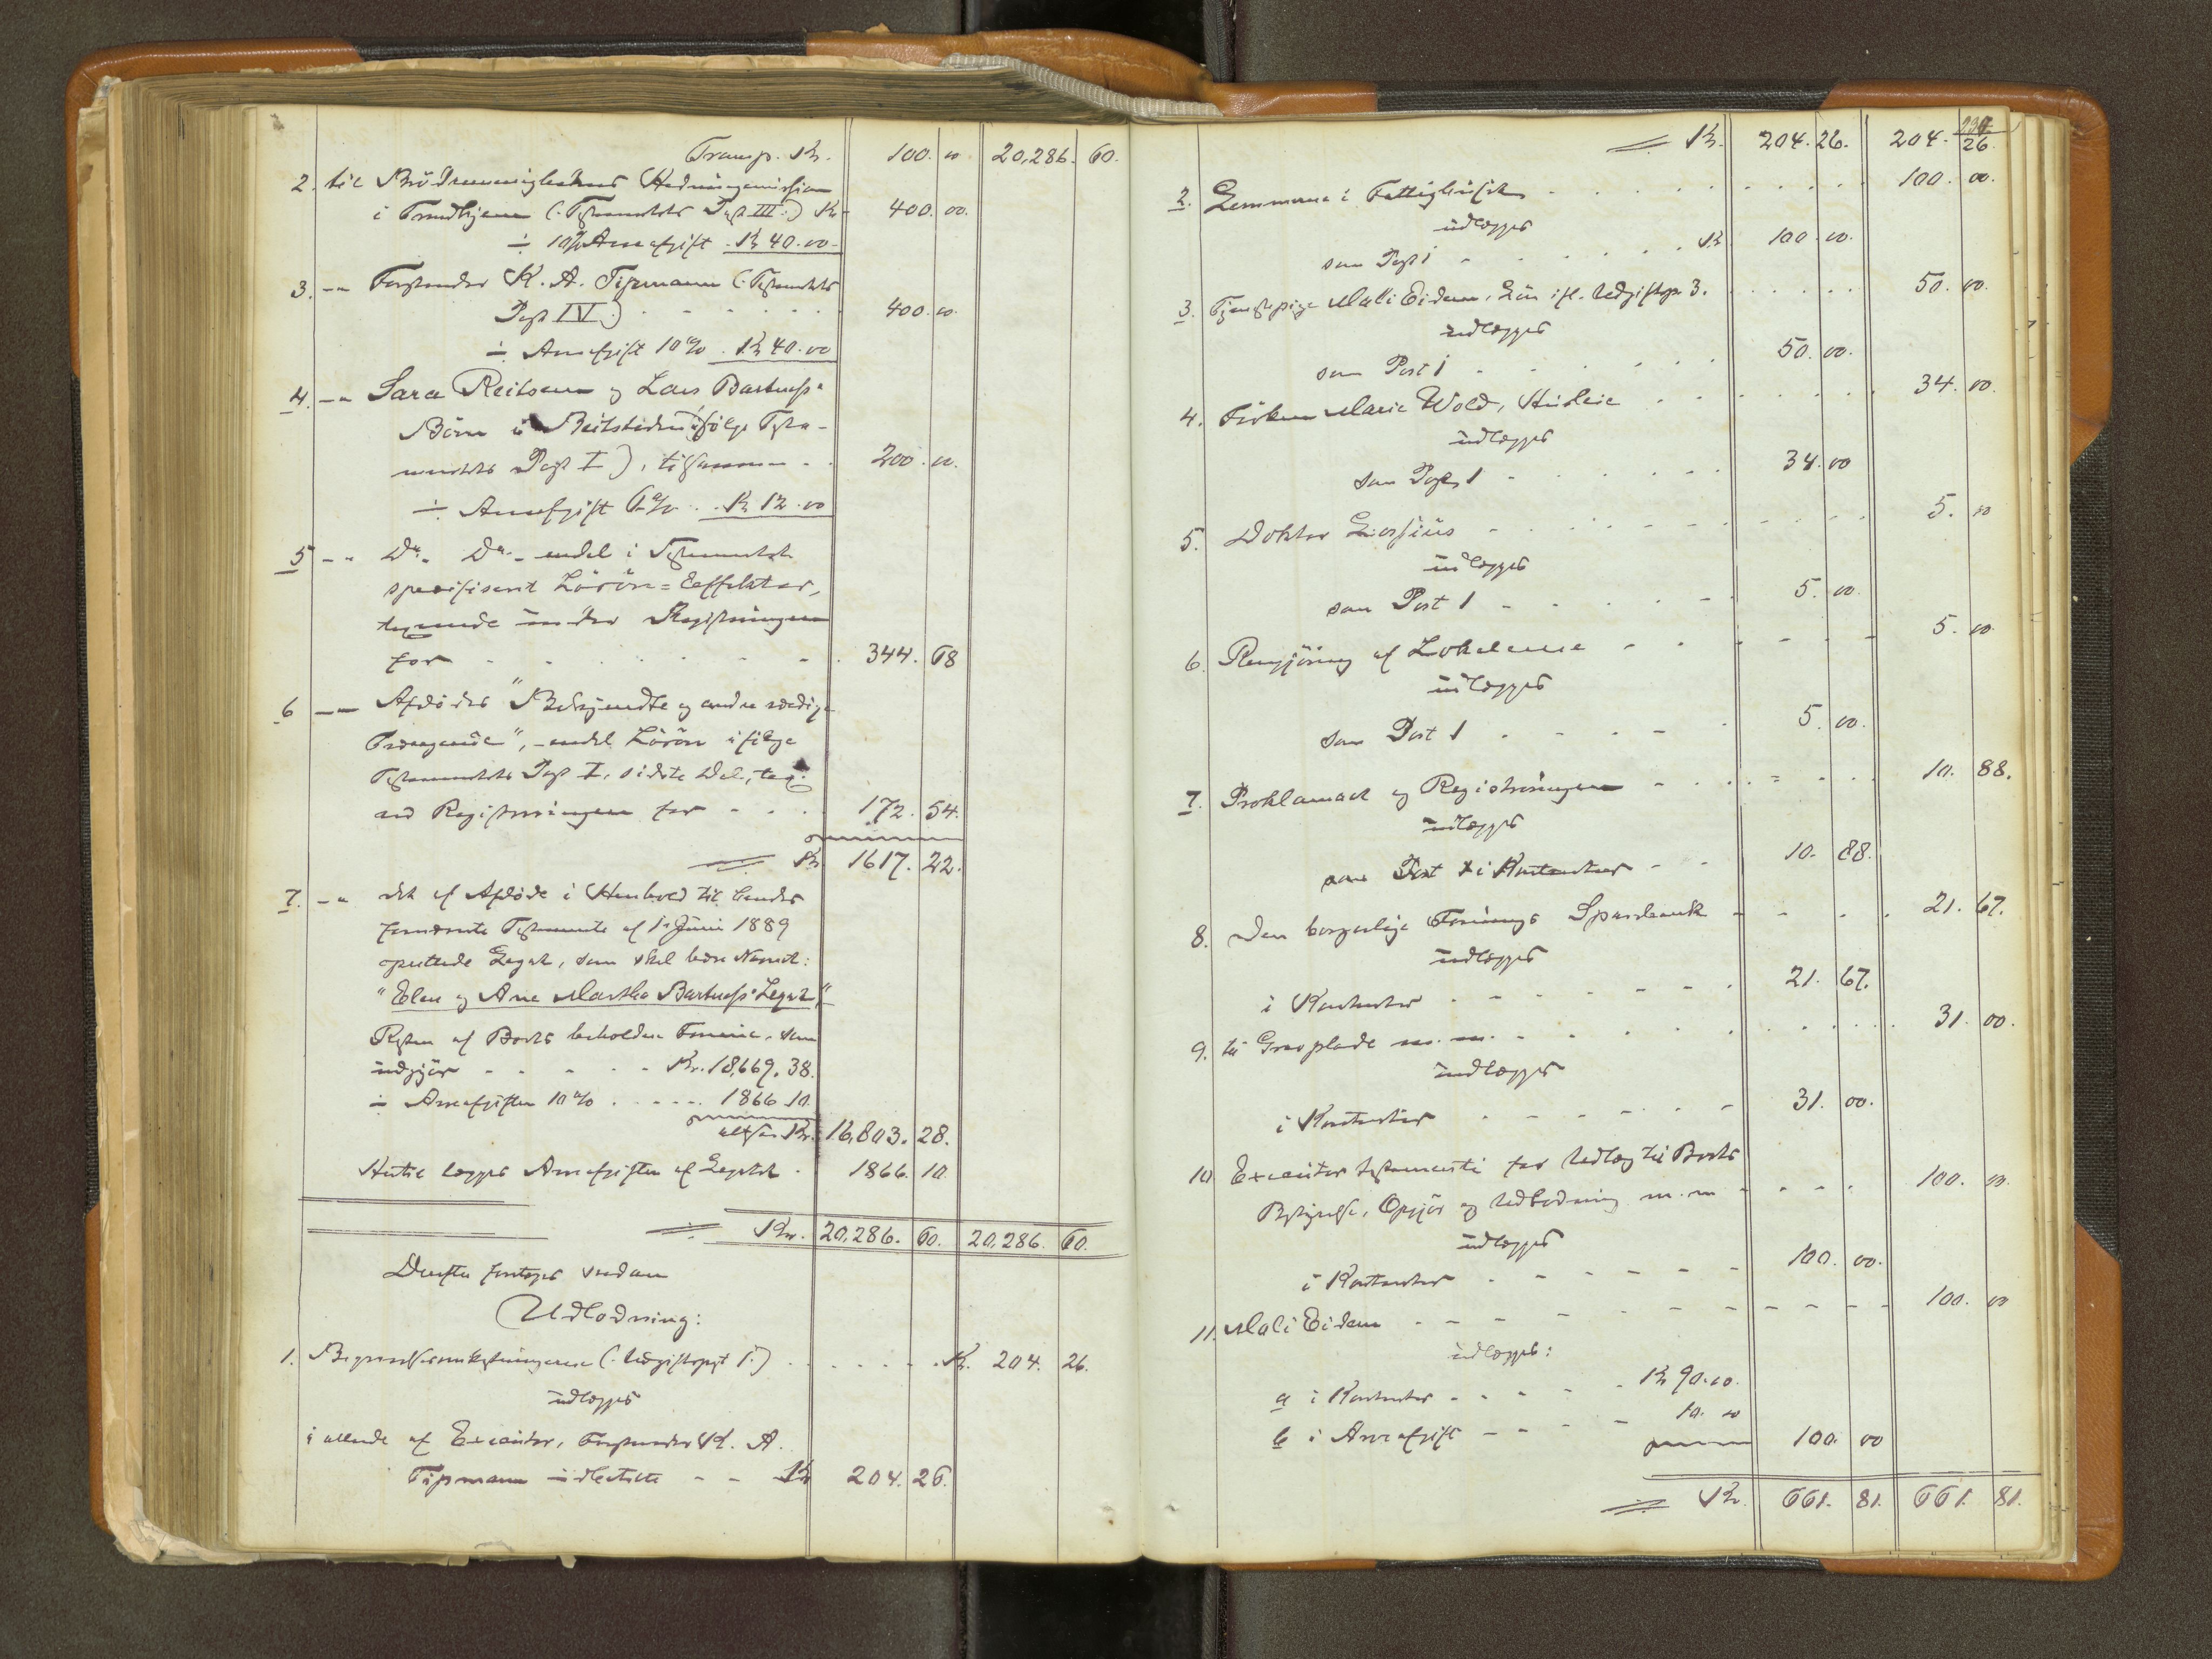 Transp. Kr. 100. 00 20,286. 60.
2. til Brødremenighedens Hedningemission
i Trondhjem (Testamentets Post III) Kr. 400. 00.
÷ 10% Arveafgift Kr 40.00
3. -"- Forstander K. A. Tipmann (Testamentets
Post IV) 400. 00.
÷ Arveafgift 10% Kr 40.00
4. -"- Sara Reitsem og Lars Bartness
Børn i Beitstaden ifølge Testa-
mentets Post I), tilsammen 200. 00.
÷ Arveafgift 6% Kr 12.00
5 -"- Do. Do. - endel i Testamentet
specificeret Løsøre=Effekter,
tagende under Registreringen
for 344. 68
6 -"- Afdødes "Bekjendte og andre værdige
Trængende", - endel Løsøre ifølge
Testamentets Post I, sidste Del, tax.
ved Registreringen for 172. 54.
Kr 1617. 22.
7. -"- det af Afdøde i Henhold til hendes
fornævnte Testamente af 1. Juni 1889
oprettede Legat, som skal bære Navnet:
"Elen og Ane Martha Bartness' Legat,"
Resten af Boets beholdne Formue, som
udgjør Kr. 18,669. 38.
÷ Arveafgiften 10% 1866.10.
altsaa Kr. 16,803. 28.
Hertil lægges Arveafgiften af Legatet 1866. 10
Kr. 20,286. 60. 20,286. 60.
Derefter foretoges saadan
Udlodning:
1. Begravelsesomkostningerne (Udgiftspost 1.) Kr. 204. 26.
udlægges
i allerede af Executor, Forstander K. A.
Tipmann udbetalte Kr 204. 26.
231
Kr. 204. 26. 204. 26
2. Lemmerne i Fattighuset 100. 00.
udlægges
som Post 1 Kr 100. 00.
3. Tjenestepige Mali Eidem, Løn ifl. Udgiftsp. 3. 50. 00.
udlægges
som Post 1 50. 00.
4. Frøken Marie Wold, Husleie 34. 00
udlægges
som Post 1 34. 00
5. Doktor 5. 00
udlægges
som Post 1 5. 00
6. Rengjøring af Lokalerne 5. 00
udlægges
som Post 1 5. 00.
7. Proklamaet og Registreringen 10. 88.
udlægges
som Post 1 i Kontanter 10. 88.
8. Den borgerlige Forenings Sparebank 21. 67.
udlægges
i Kontanter 21. 67.
9. til Gravplade m. m. 31. 00.
udlægges
i Kontanter 31. 00.
10 Executor testamenti for Udlæg til Boets
Bestyrelse, Opgjør og Udlodning m. m 100. 00.
udlægges
i Kontanter 100. 00.
11. Mali Eidem 100. 00
udlægges:
a i Kontanter Kr 90.00.
b i Arveafgift 10. 00 100. 00
Kr. 661. 81. 661. 81.